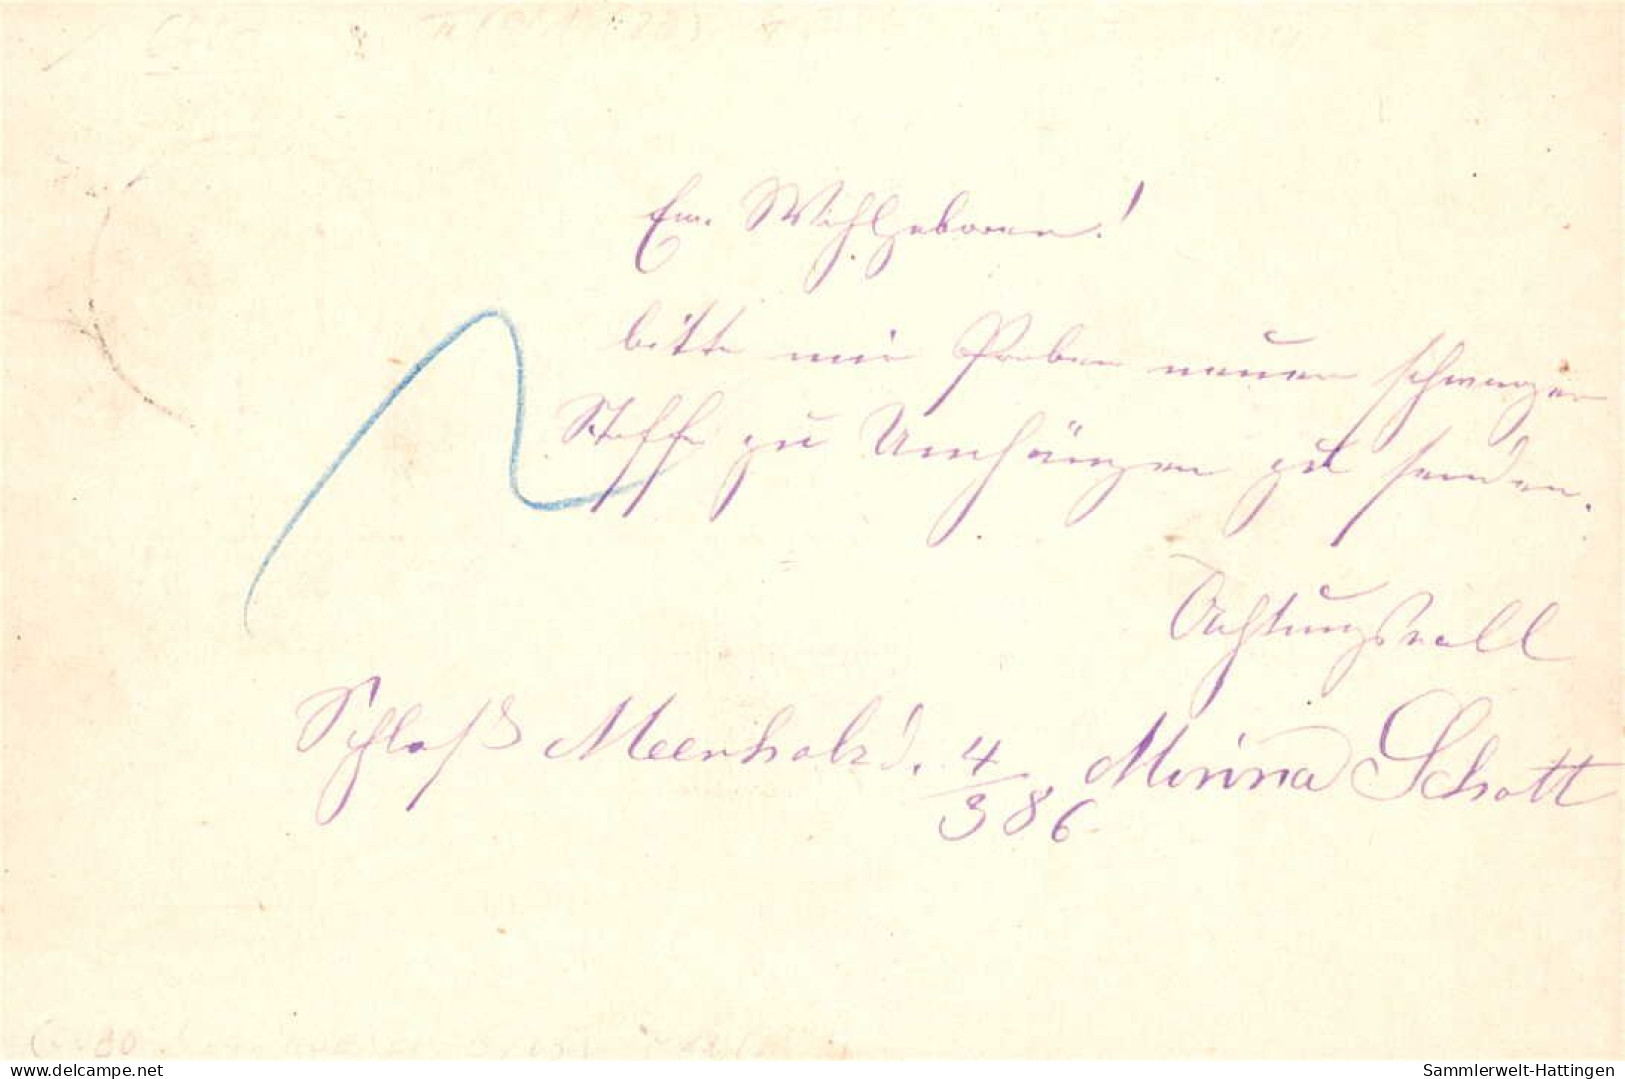 Ew. Wohlgeboren!
bitte mir Proben neuer schwarzer
Stoffe zu Umhängen zu senden.
Achtungsvoll
Schloß Meerholz d. 4/3 86. Minna Schott
www.delcampe.net
Sammlerwelt-Hattingen